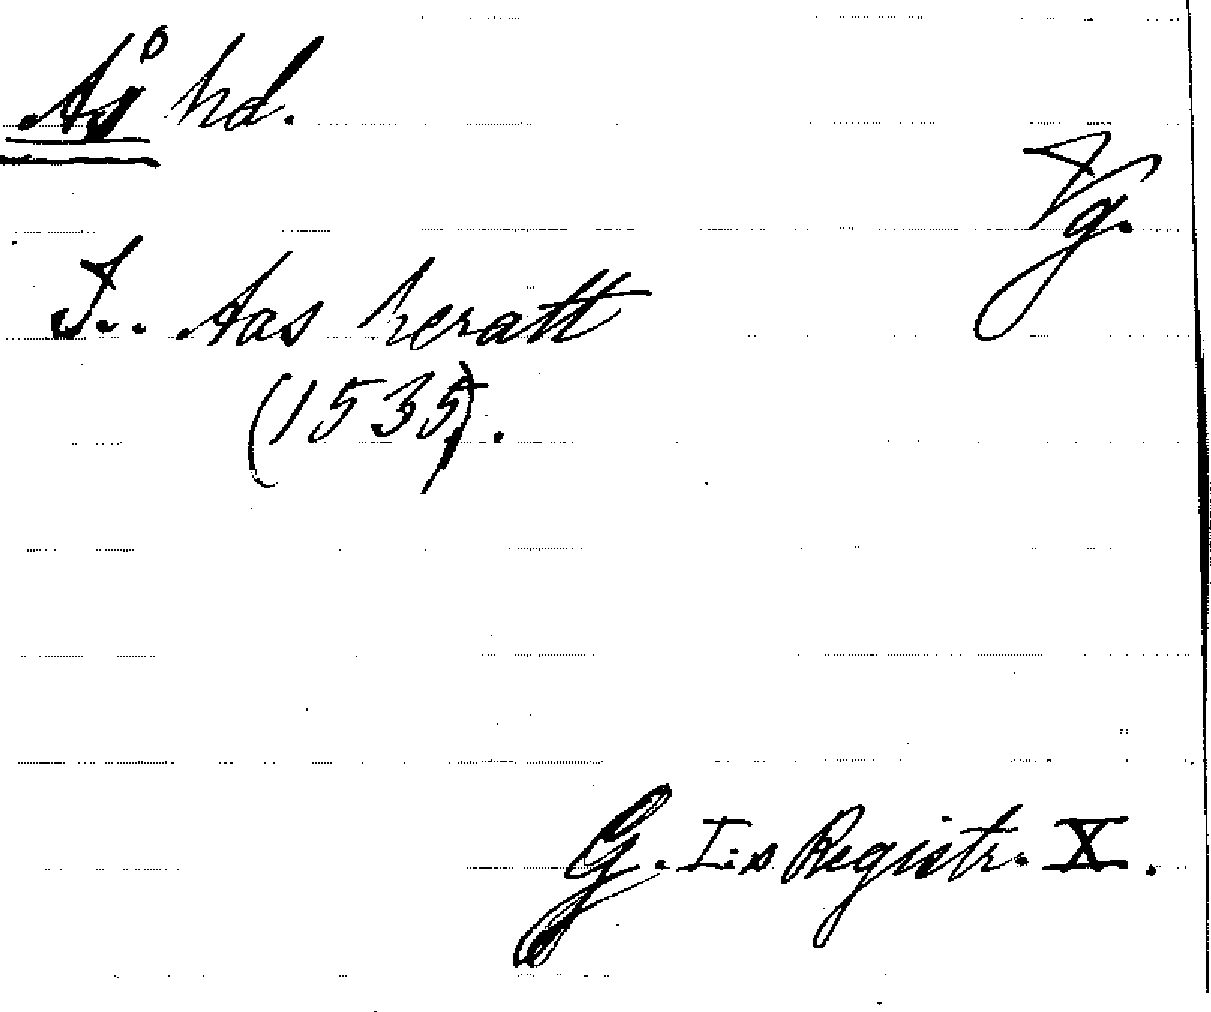 Ås hd.
Vg.
I.. Aas heratt
(1535).
G. I:s Registr. X.